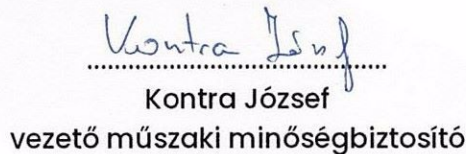 Kontra József
Kontra József
vezető műszaki minőségbiztosító